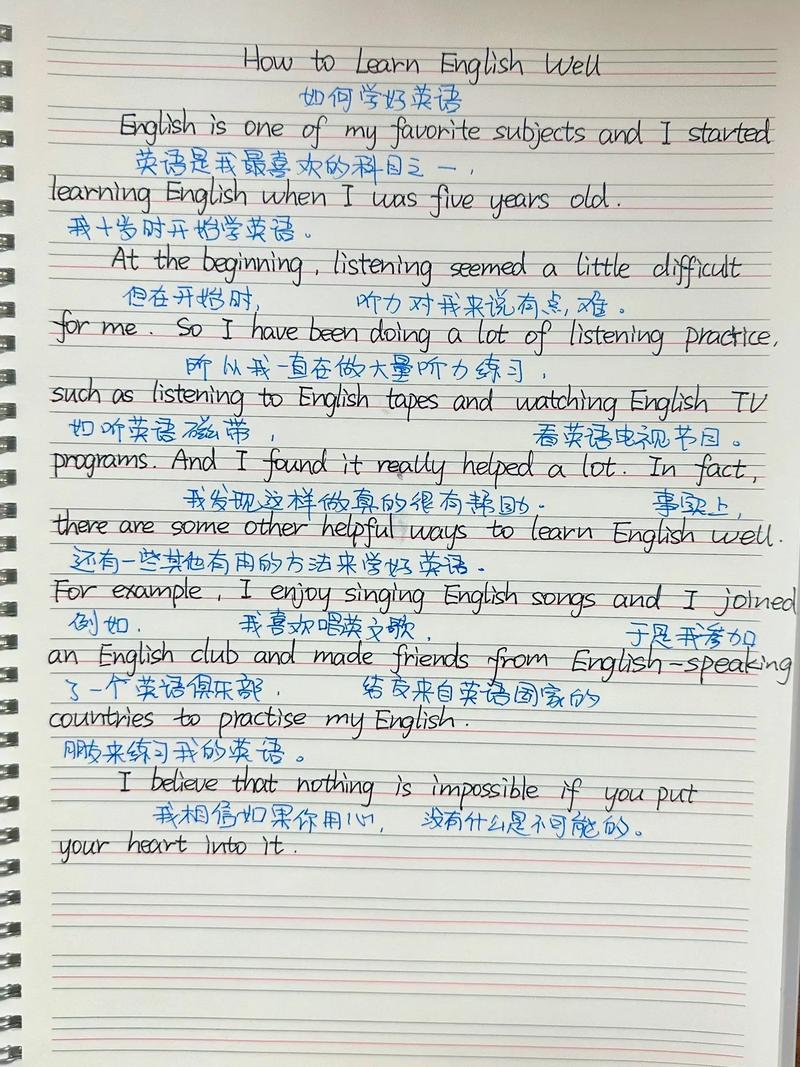 How to Learn English Well
如何学好英语
English is one of my favorite subjects and I started
英语是我最喜欢的科目之一,
learning English when I was five years old.
我十岁时开始学英语。
At the beginning, listening seemed a little difficult
但在开始时, 听力对我来说有点,难。
for me. So I have been doing a lot of listening practice,
所从我一直在做大量听力练习,
such as listening to English tapes and watching English TV
如听英语磁带, 看英语电视节目。
programs. And I found it really helped a lot. In fact,
我发现这样做真的很有帮助. 事实上,
there are some other helpful ways to learn English well.
还有一些其他有用的方法来学好英语.
For example, I enjoy singing English songs and I joined
例如. 我喜欢唱英文歌, 于是我参加
an English club and made friends from English-speaking
了一个英语俱乐部. 结友来自英语国家的
countries to practise my English.
朋友来练习我的英语。
I believe that nothing is impossible if you put
我相信如果你用心, 没有什么是不可能的。
your heart into it.